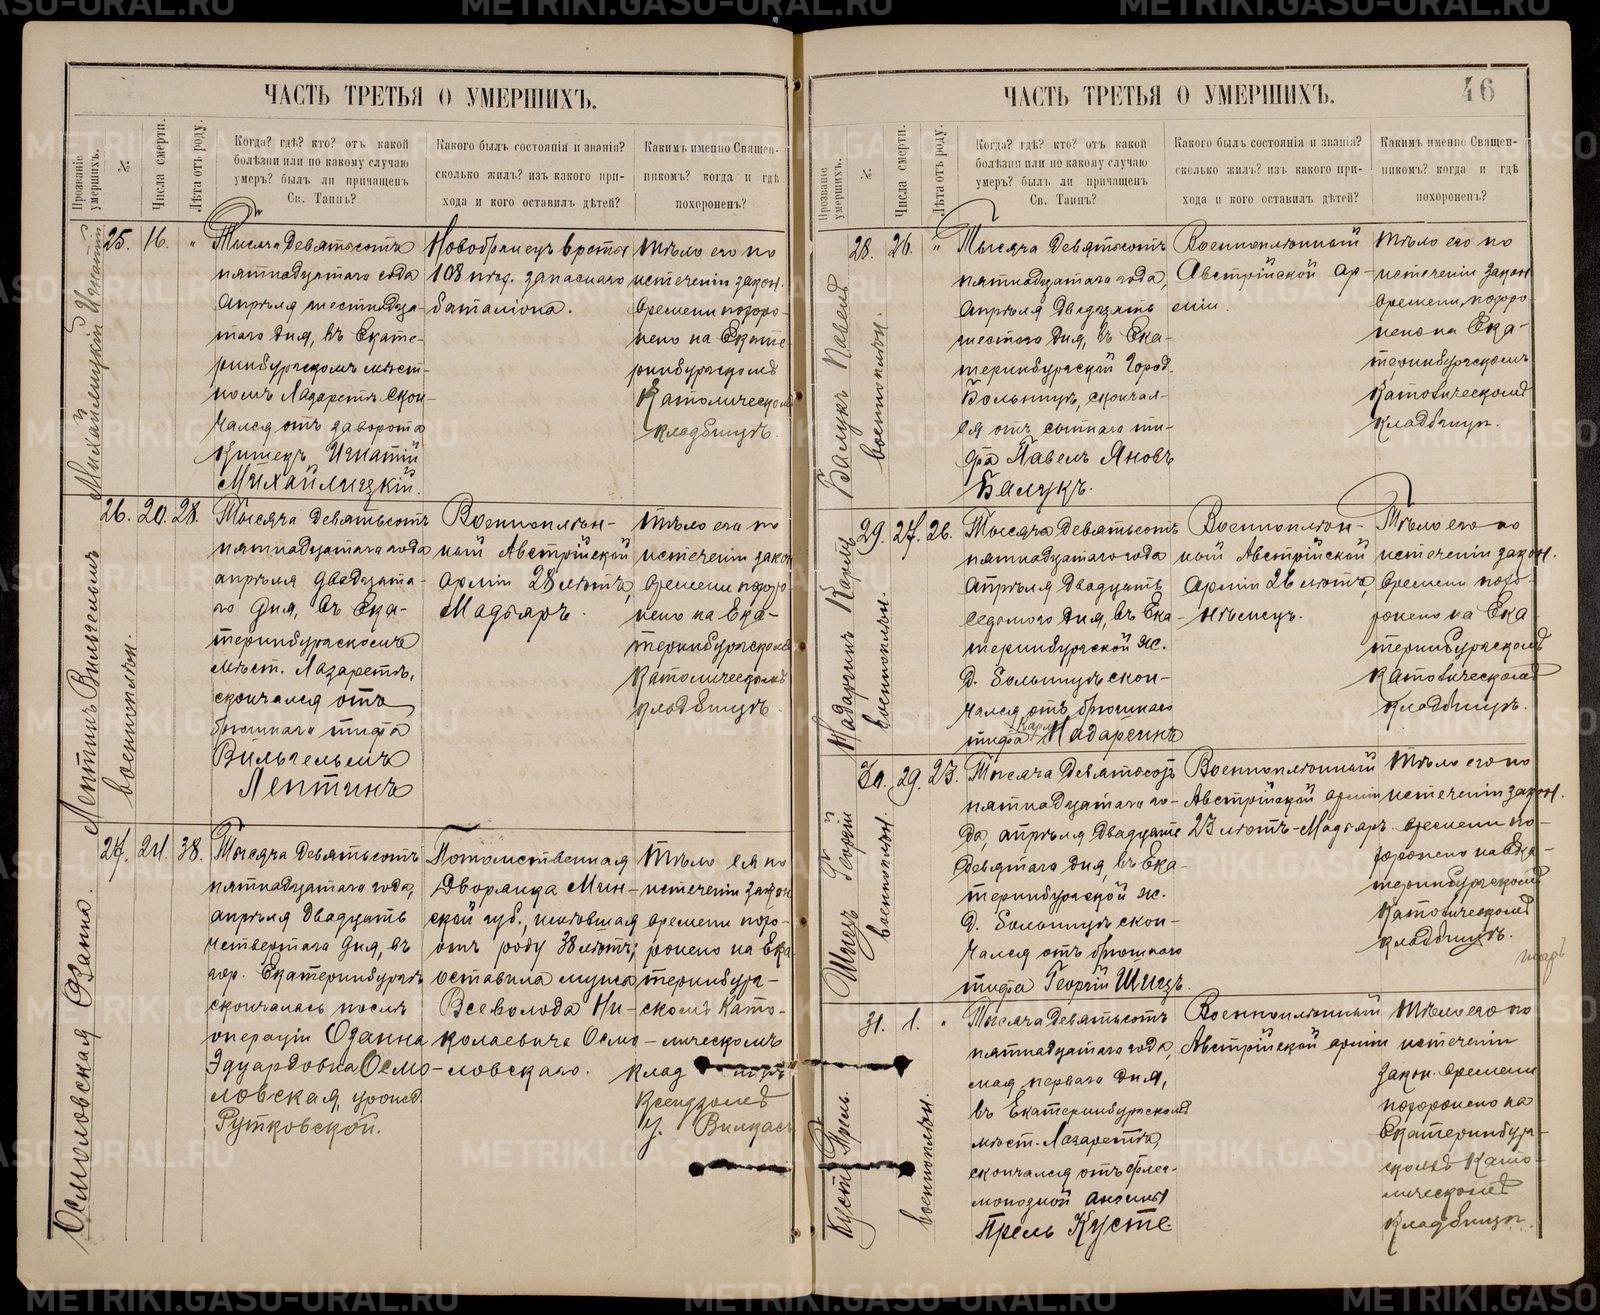 ЧАСТЬ ТРЕТЬЯ О УМЕРШИХЪ.
Прозваніе умершихъ.
№.
Числа смерти.
Лѣта отъ роду.
Когда? гдѣ? кто? отъ какой
болѣзни или по какому случаю
умеръ? былъ ли причащенъ
Св. Таинъ?
Какого былъ состоянія и званія?
сколько жилъ? изъ какого при-
хода и кого оставилъ дѣтей?
Какимъ именно Священ-
никомъ? когда и гдѣ
похороненъ?
Михайлицкій Игнатій
25. 16. "
Тысяча девятьсотъ
пятнадцатаго года
Апрѣля шестнадца-
таго дня, въ Екате-
ринбургскомъ мѣст-
номъ Лазаретѣ скон-
чался отъ заворота
кишекъ Игнатій
Михайлицкій.
Новобранецъ 
108 запаснаго
баталіона.
Тѣло его по
истеченіи закон.
времени похоро-
нено на Екате-
ринбургскомъ
Католическомъ
кладбищѣ.
Лептинъ Вильгельмъ
военноплѣн.
26. 20. 28.
Тысяча девятьсотъ
пятнадцатаго года
апрѣля двадцата-
го дня, въ Ека-
теринбургскомъ
мѣст. Лазаретѣ,
скончался отъ
брюшнаго тифа
Вильгельмъ
Лептинъ
Военноплѣн-
ный Австрійской
арміи 28 лѣтъ,
Мадьяръ.
Тѣло его по
истеченіи закон
времени похоро-
нено на Ека-
теринбургскомъ
Католическомъ
кладбищѣ.
Осмоловская Озанна.
27. 24. 38.
Тысяча девятьсотъ
пятнадцатаго года,
апрѣля двадцать
четвертаго дня, въ
гор. Екатеринбургѣ
скончалась послѣ
операціи Озанна
Эдуардовна Осмо-
ловская, урожд.
Рутковской.
Потомственная
Дворянка Мин-
ской губ., имѣвшая
отъ роду 38 лѣтъ;
оставила мужа
Всеволода Ни-
колаевича Осмо-
ловскаго.
Тѣло ея по
истеченіи закон
времени похо-
ронено на Ека-
теринбург-
скомъ Като-
лическомъ
клад
Ксендзомъ
ЧАСТЬ ТРЕТЬЯ О УМЕРШИХЪ.
46
Прозваніе умершихъ.
№.
Числа смерти.
Лѣта отъ роду.
Когда? гдѣ? кто? отъ какой
болѣзни или по какому случаю
умеръ? былъ ли причащенъ
Св. Таинъ?
Какого былъ состоянія и званія?
сколько жилъ? изъ какого при-
хода и кого оставилъ дѣтей?
Какимъ именно Священ-
никомъ? когда и гдѣ
похороненъ?
Балукъ Павелъ
военноплѣн.
28. 26. "
Тысяча девятьсотъ
пятнадцатаго года,
Апрѣля двадцать
шестого дня, въ Ека-
теринбургской Город.
Больницѣ, скончал-
ся отъ сыпнаго ти-
фа Павелъ Яновъ
Балукъ.
Военноплѣнный
Австрійской ар-
міи.
Тѣло его по
истеченіи закон
времени, похоро-
нено на Ека-
теринбургскомъ
Католическомъ
кладбищѣ.
Мадаргинъ Карлъ
военноплѣн.
29. 27. 26.
Тысяча девятьсотъ
пятнадцатаго года
Апрѣля двадцать
седьмого дня, въ Ека-
теринбургской ж.
д. больницѣ скон-
чался отъ брюшнаго
тифа Карлъ Мадаргинъ
Военноплѣн-
ный Австрійской
арміи 26 лѣтъ,
нѣмецъ.
Тѣло его по
истеченіи закон.
времени похо-
ронено на Ека-
теринбургскомъ
Католическомъ
кладбищѣ.
Шигъ Георгій
военноплѣн.
30. 29. 23.
Тысяча девятьсотъ
пятнадцатаго го-
да, апрѣля двадцать
девятаго дня, въ Ека-
теринбургской ж.
д. больницѣ скон-
чался отъ брюшнаго
тифа Георгій Шигъ.
Военноплѣнный
Австрійской арміи
23 лѣтъ-Мадьяръ.
Тѣло его по
истеченіи закон.
времени по-
хоронено на Ека-
теринбургскомъ
Католическомъ
кладбищѣ.
Кусте Прель.
военноплѣн.
31. 1. "
Тысяча девятьсотъ
пятнадцатаго года,
мая перваго дня,
въ Екатеринбургскомъ
мѣст. Лазаретѣ,
скончался отъ флег-
монозной ангины
Прель Кусте
Военноплѣнный
Австрійской арміи
Тѣло его по
истеченіи
закон. времени
похоронено на
Екатеринбург-
скомъ Като-
лическомъ
кладбищѣ.
METRIKI.GASO-URAL.RU